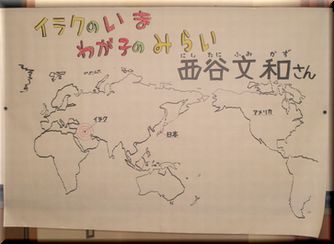 イラクのいま
わが子のみらい
にしたに ふみ かず
西谷文和さん
イラク
日本
アメリカ